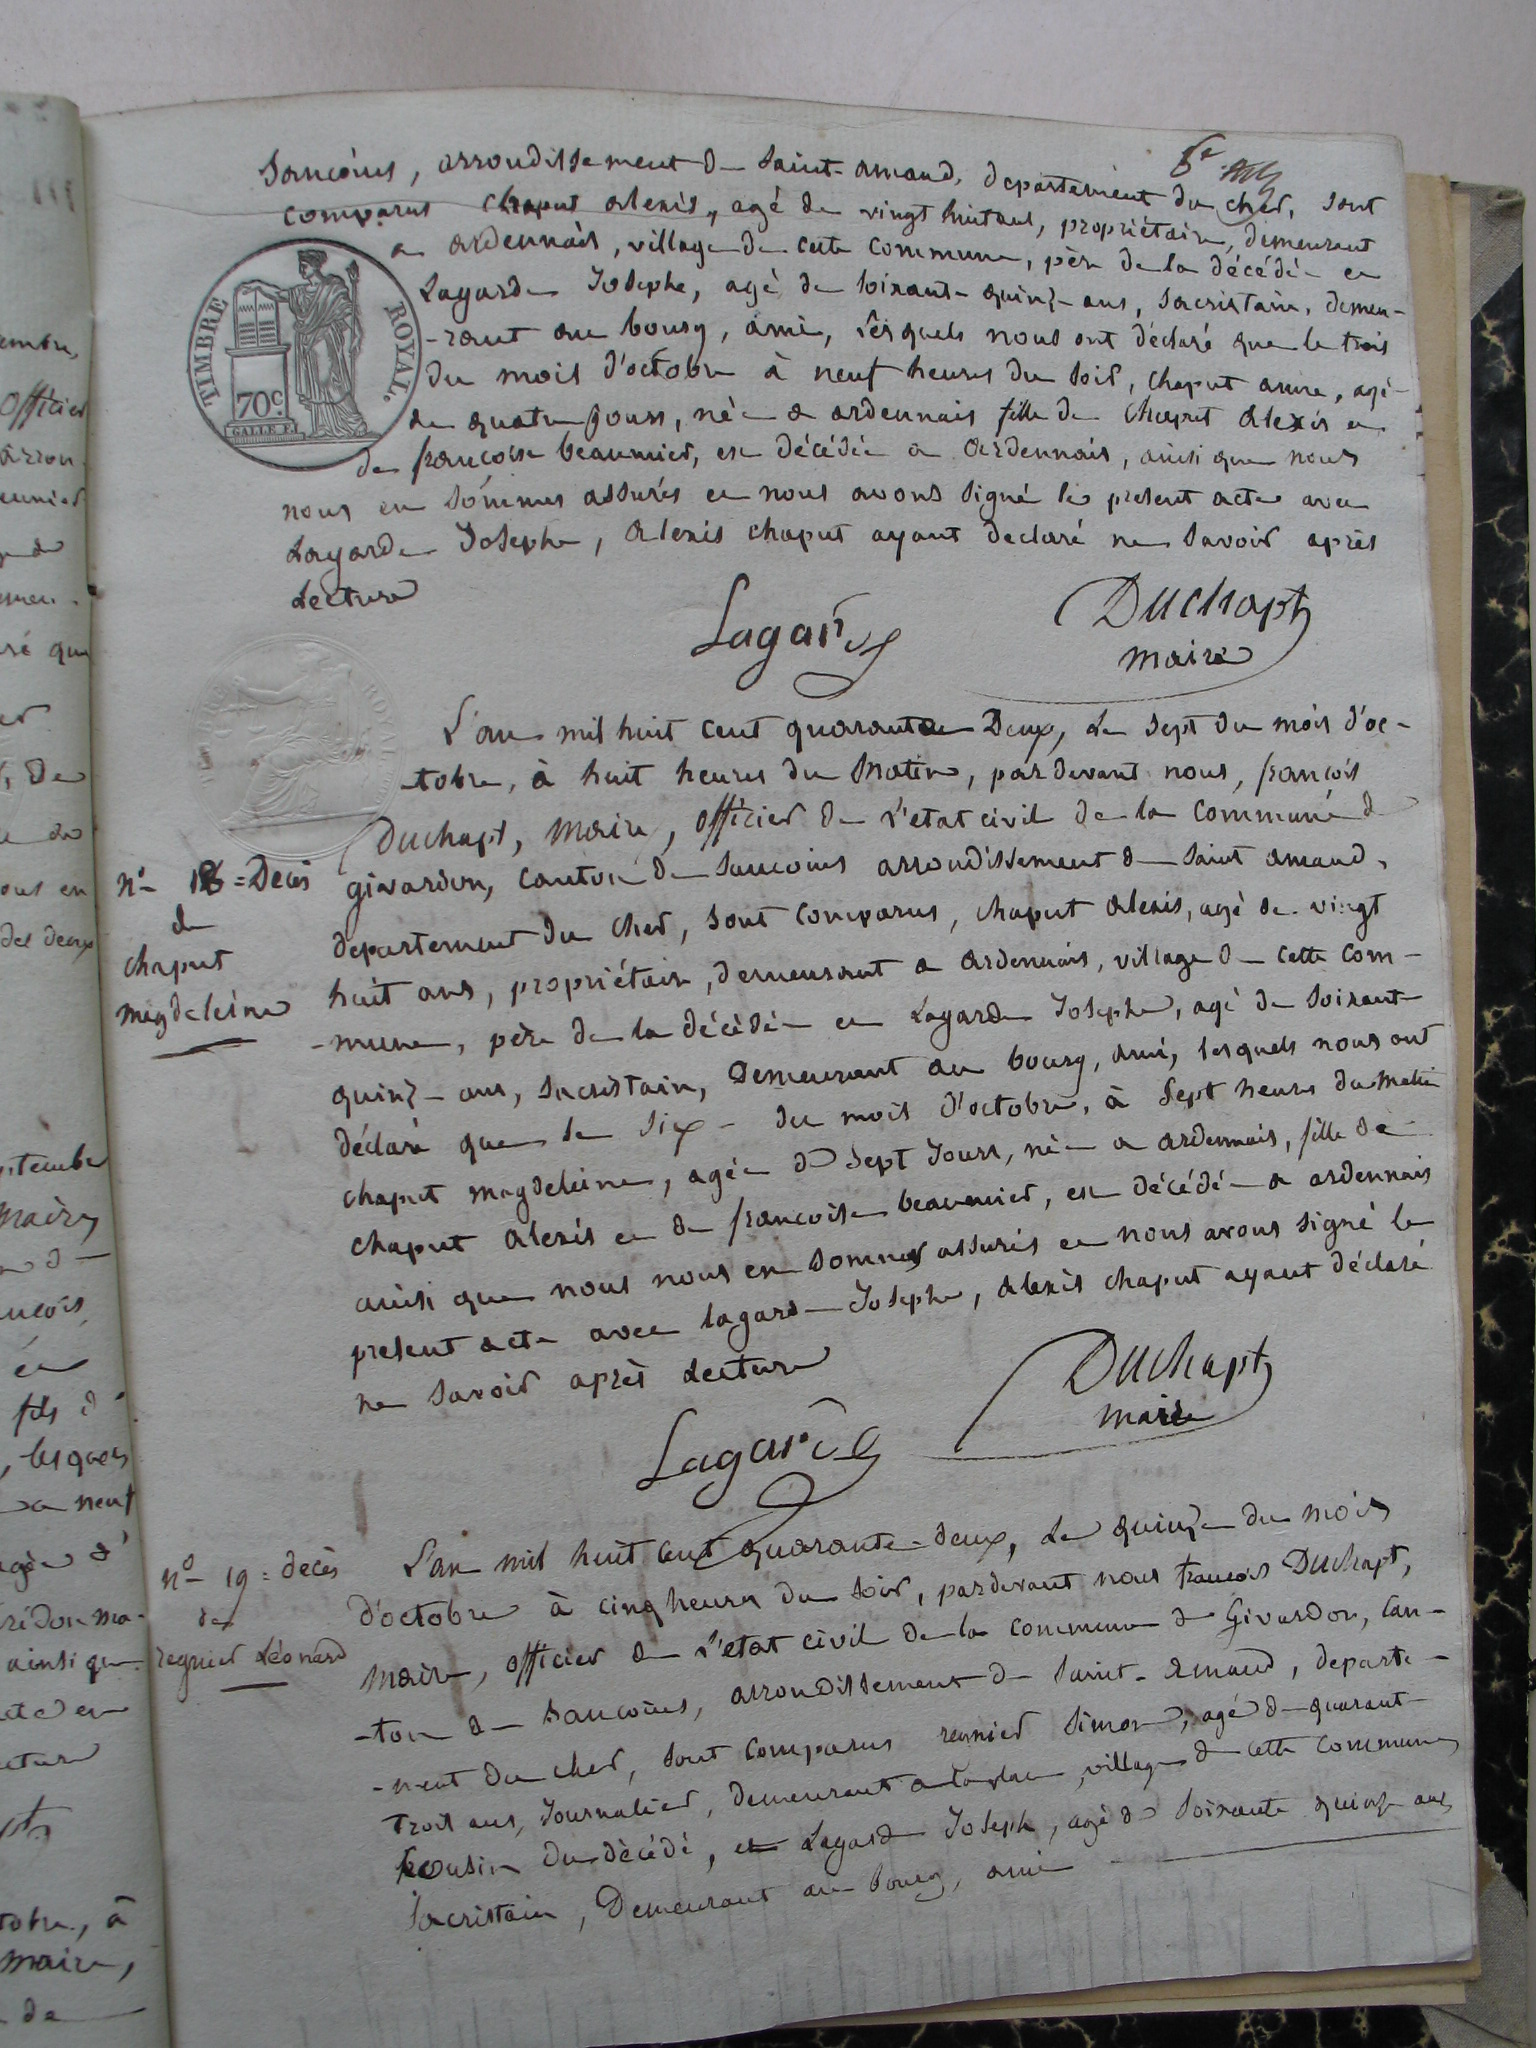 Sancoins, arrondissement de Saint-amand, departement du cher, sont
comparus chaput alexis, agé de vingt huit ans, propriétaire, demeurant
a ardennais, village de cette commune, père de la décédée et
Lagarde Josephe, agé de soixante quinze ans, sacristain, demeu-
-rant au bourg, ami, lesquels nous ont déclaré que le trois
du mois d'octobre à neuf heures du soir, chaput anne, agé-
de quatre jours, née a ardennais fille de Chaput Alexis et
de françoise beaumier, est décédée a ardennais, ainsi que nous
nous en sommes assurés et nous avons signé le present acte avec
Lagarde Josephe, alexis chaput ayant declaré ne savoir après
Lecture
TIMBRE ROYAL.
70c
GALLE F.
Lagarde
Duchapt
maire
L'an mil huit cent quarante Deux, Le sept du mois d'oc-
-tobre, à huit heures du matin, pardevant nous, françois
Duchapt, Maire, officier de L'etat civil de la commune de
givardon, canton de Sancoins arrondissement de Saint amand,
departement du cher, sont comparus, chaput alexis, agé de vingt
huit ans, propriétaire, demeurant a ardennais, village de cette com-
-mune, père de la décédée et Lagarde Josephe, agé de soixante
quinze ans, sacristain, Demeurant au bourg, ami, lesquels nous ont
déclaré que le six du mois d'octobre, à Sept heures du matin
chaput magdeleine, agée de Sept Jours, née a ardennais, fille de
chaput alexis et de françoise beaumier, est décédée a ardennais
ainsi que nous nous en sommes assurés et nous avons signé le
present acte avec lagarde Josephe, alexis chaput ayant déclaré
ne savoir après Lecture
n° 18 = Decès
de
chaput
magdeleine
Lagarde
Duchapt
maire
L'an mil huit cent quarante-deux, Le quinze du mois
d'octobre à cinq heures du soir, pardevant nous francois Duchapt,
Maire, officier de L'etat civil de la commune de Givardon, can-
-ton de Sancoins, arrondissement de Saint-Amand, departe-
-ment du cher, sont comparus regnier Simon, agé de quarante
trois ans, Journalier, demeurant a , village de cette commune
cousin du décédé, et Lagarde Joseph, agé de soixante quinze ans
Sacristain, Demeurant au bourg, ami
n° 19 = decès
de
regnier Léonard